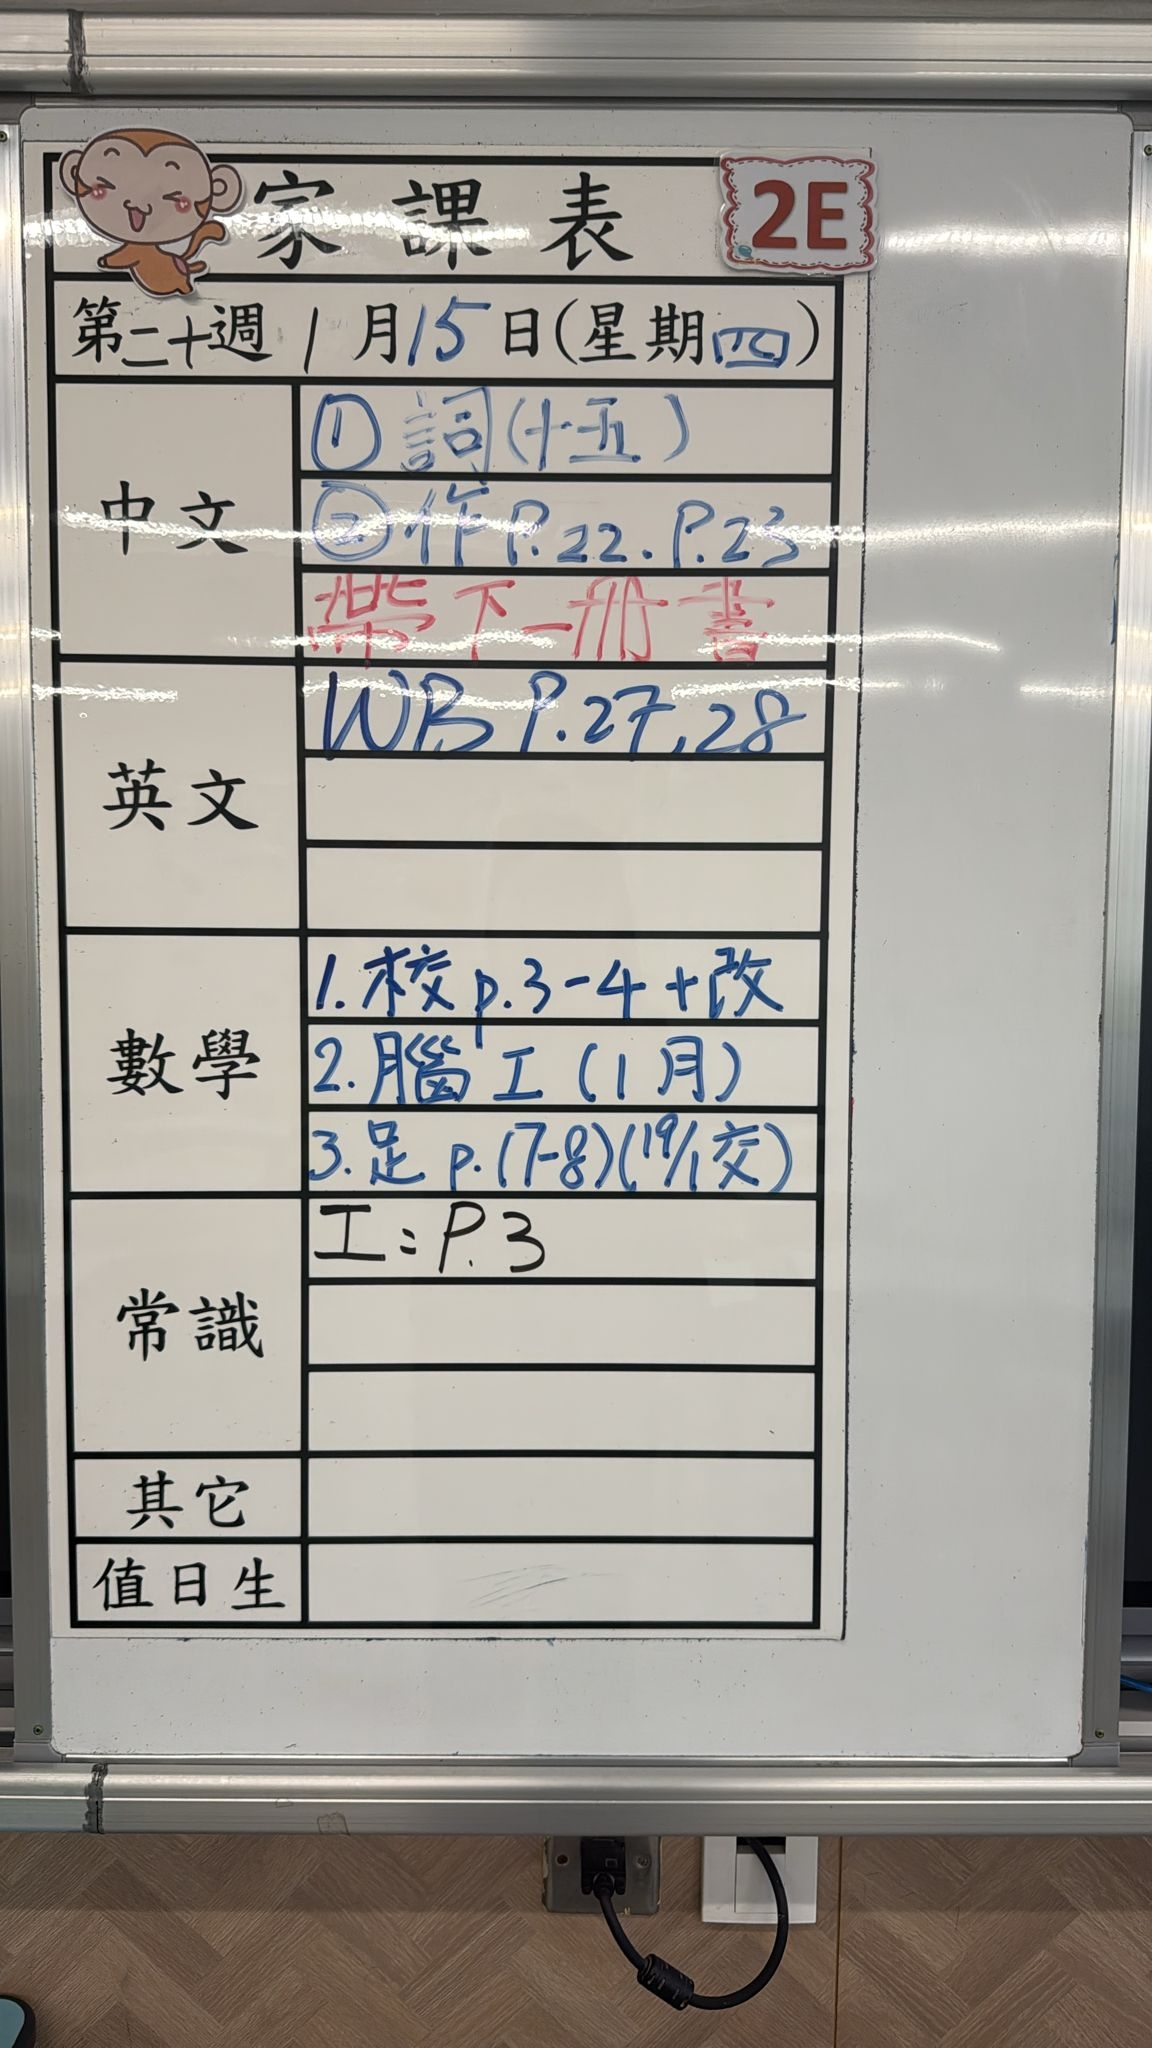 家課表
2E
第二十週 1月15日(星期四)
中文
① 詞(十五)
② 作P.22.P.23
帶下一冊書
英文
WB P.27,28
數學
1. 校 p.3-4 +改
2. 腦工(1月)
3. 足 p.(7-8)(19/1交)
常識
工:P.3
其它
值日生